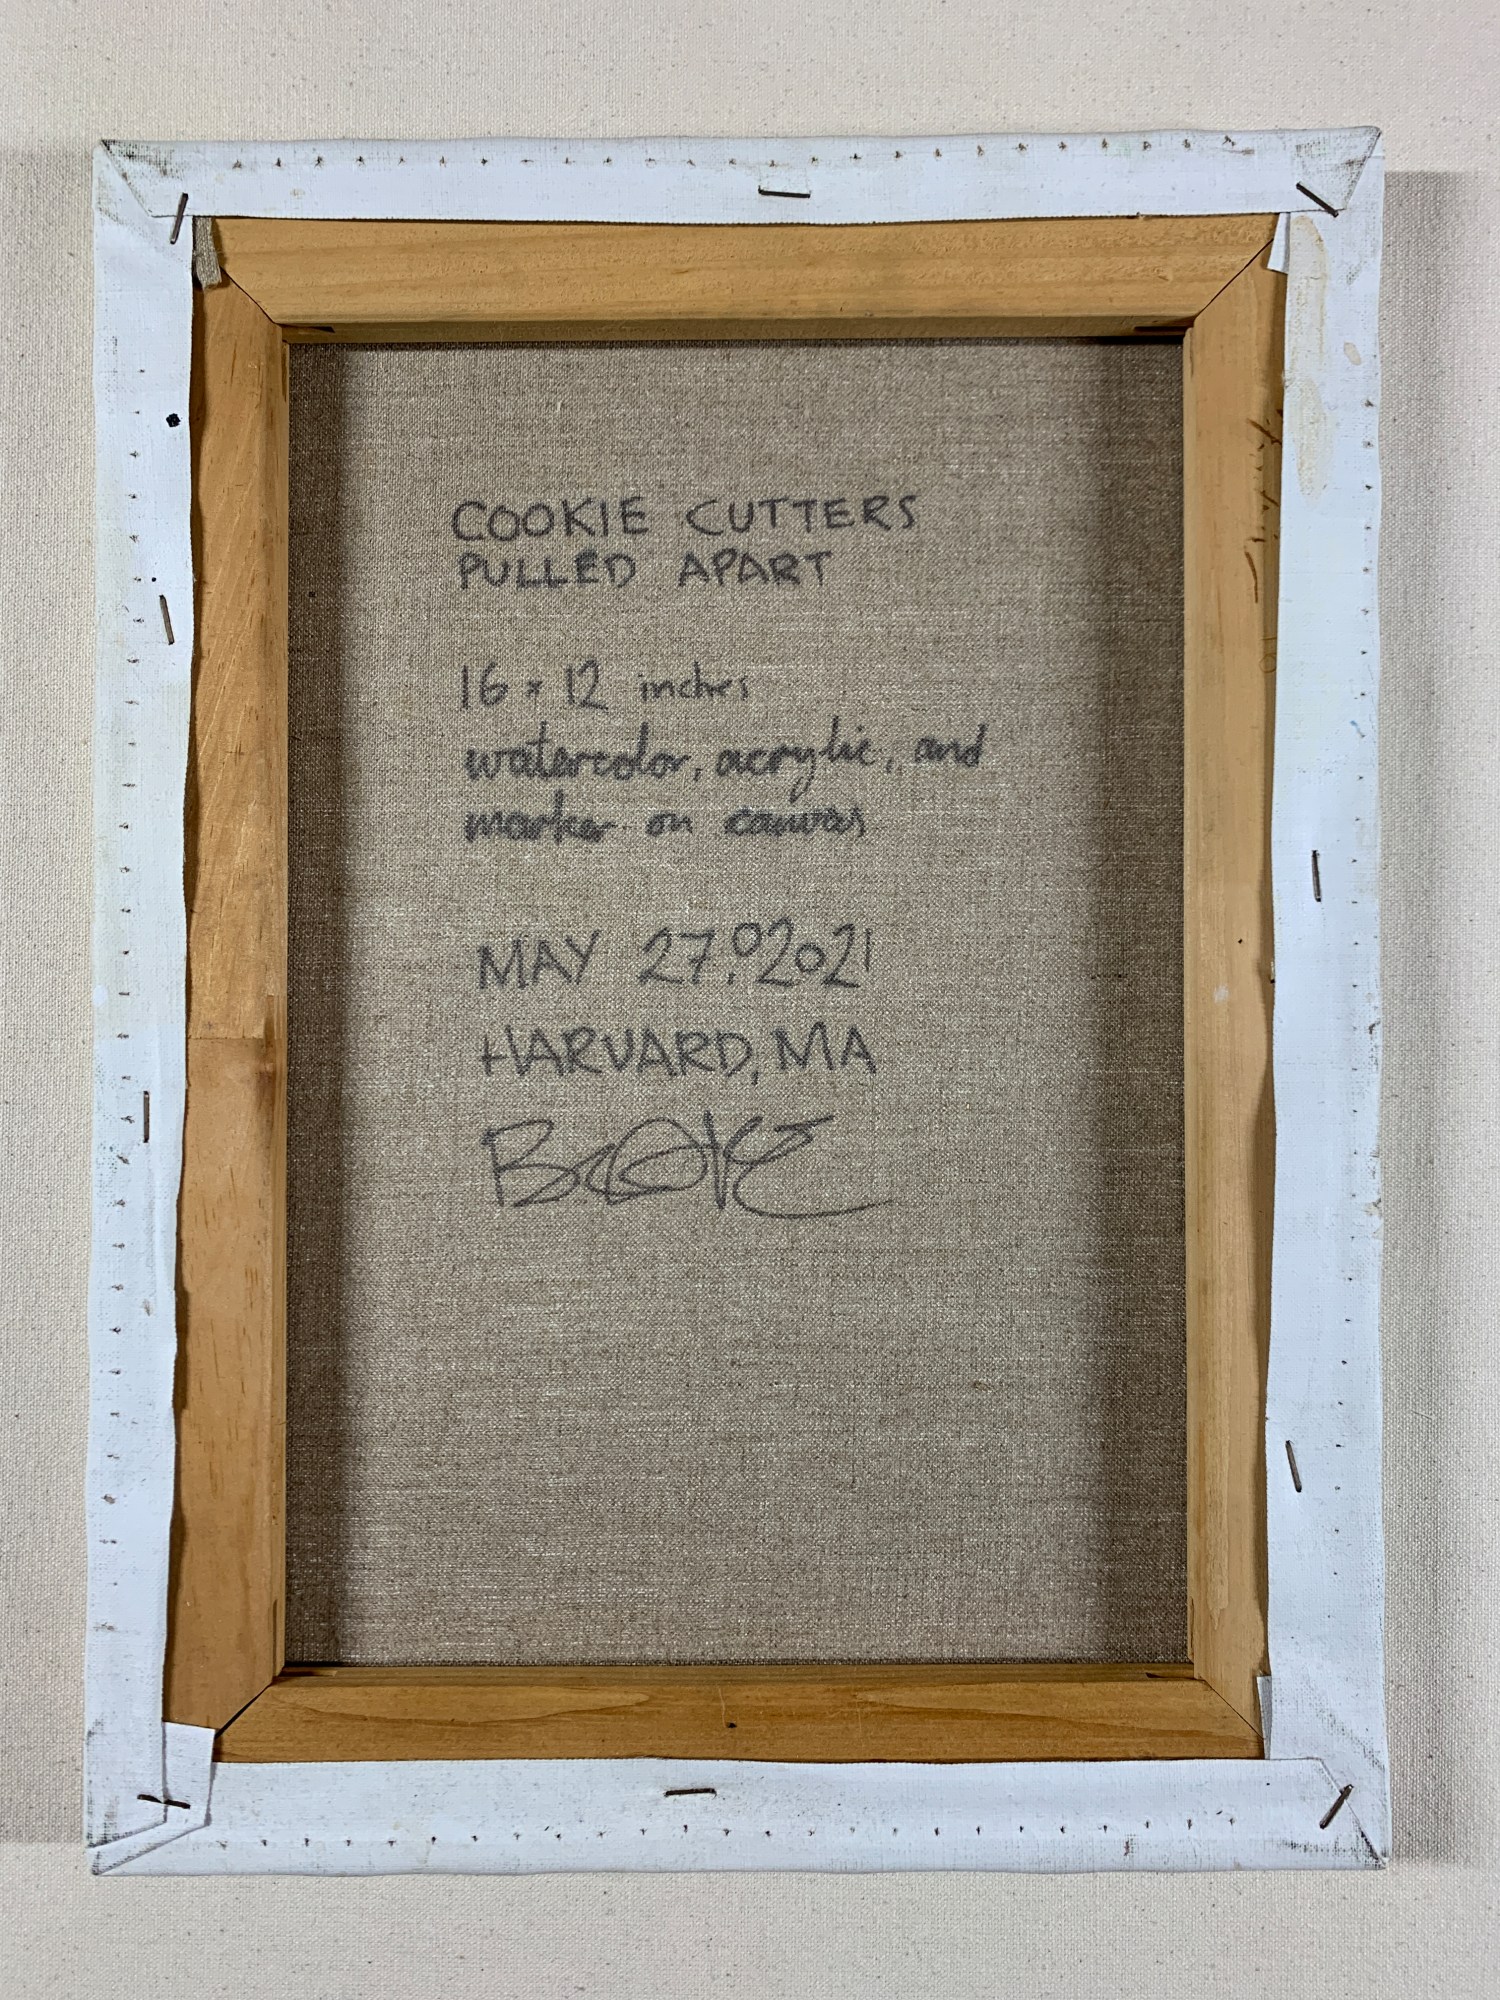 COOKIE CUTTERS
PULLED APART
16 × 12 inches
watercolor, acrylic, and
marker on canvas
MAY 27, 02021
HARVARD, MA